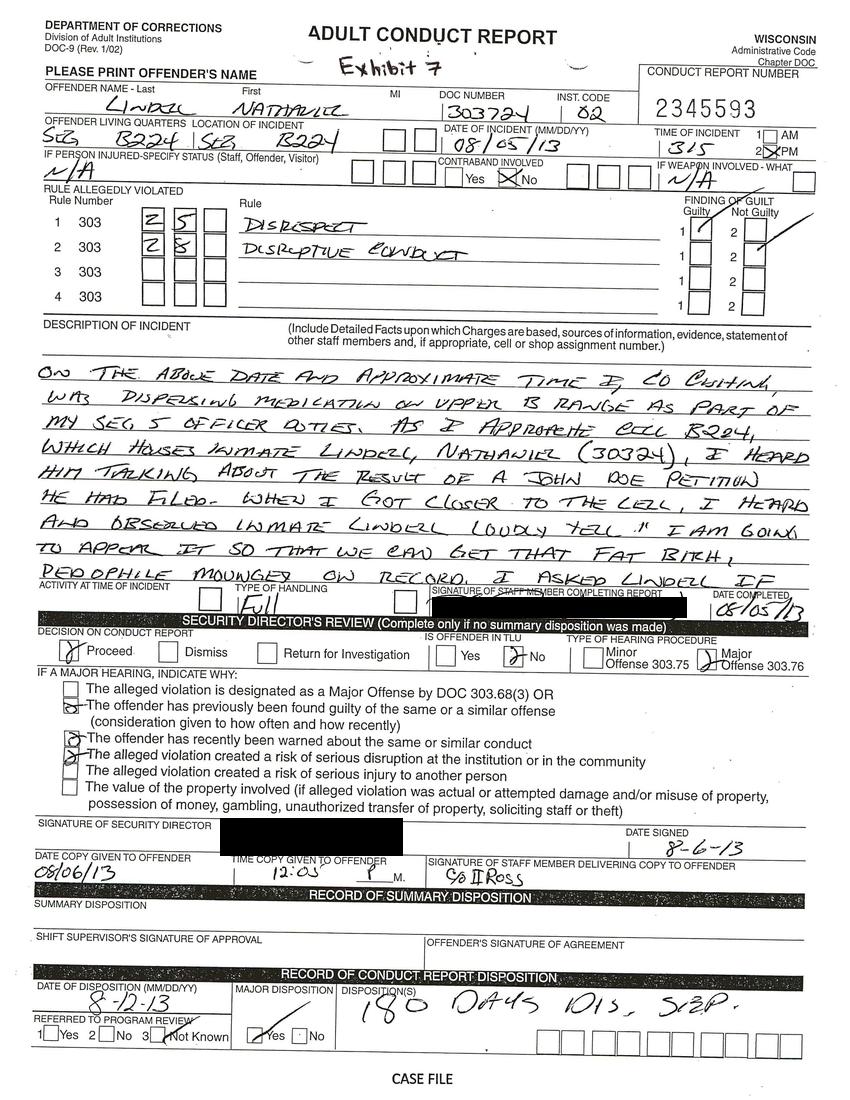 DEPARTMENT OF CORRECTIONS
Division of Adult Institutions
DOC-9 (Rev. 1/02)
ADULT CONDUCT REPORT
WISCONSIN
Administrative Code
Chapter DOC
Exhibit 7
PLEASE PRINT OFFENDER'S NAME
CONDUCT REPORT NUMBER
2345593
OFFENDER NAME - Last First MI DOC NUMBER INST. CODE
LINDELL NATHANIEL 303724 02
OFFENDER LIVING QUARTERS LOCATION OF INCIDENT DATE OF INCIDENT (MM/DD/YY) TIME OF INCIDENT 1 AM
SEG B224 SEG B224 08/05/13 315 2 PM
IF PERSON INJURED-SPECIFY STATUS (Staff, Offender, Visitor) CONTRABAND INVOLVED IF WEAPON INVOLVED - WHAT
N/A Yes No N/A
RULE ALLEGEDLY VIOLATED
Rule Number Rule FINDING OF GUILT
Guilty Not Guilty
1 303 25 DISRESPECT 1 2
2 303 28 DISRUPTIVE CONDUCT 1 2
3 303 1 2
4 303 1 2
DESCRIPTION OF INCIDENT (Include Detailed Facts upon which Charges are based, sources of information, evidence, statement of
other staff members and, if appropriate, cell or shop assignment number.)
ON THE ABOVE DATE AND APPROXIMATE TIME I, CO
WAS DISPERSING MEDICATION ON UPPER B RANGE AS PART OF
MY SEG 5 OFFICER DUTIES. AS I APPROACHE CELL B224,
WHICH HOUSES INMATE LINDELL, NATHANIEL (30324), I HEARD
HIM TALKING ABOUT THE RESULT OF A JOHN DOE PETITION
HE HAD FILED. WHEN I GOT CLOSER TO THE CELL, I HEARD
AND OBSERVED INMATE LINDELL LOUDLY YELL " I AM GOING
TO APPEAL IT SO THAT WE CAN GET THAT FAT BITCH,
PEDOPHILE MOUNGEY ON RECORD. I ASKED LINDELL IF
ACTIVITY AT TIME OF INCIDENT TYPE OF HANDLING SIGNATURE OF STAFF MEMBER COMPLETING REPORT DATE COMPLETED
Full 08/05/13
SECURITY DIRECTOR'S REVIEW (Complete only if no summary disposition was made)
DECISION ON CONDUCT REPORT IS OFFENDER IN TLU TYPE OF HEARING PROCEDURE
Proceed Dismiss Return for Investigation Yes No Minor Offense 303.75 Major Offense 303.76
IF A MAJOR HEARING, INDICATE WHY:
The alleged violation is designated as a Major Offense by DOC 303.68(3) OR
The offender has previously been found guilty of the same or a similar offense
(consideration given to how often and how recently)
The offender has recently been warned about the same or similar conduct
The alleged violation created a risk of serious disruption at the institution or in the community
The alleged violation created a risk of serious injury to another person
The value of the property involved (if alleged violation was actual or attempted damage and/or misuse of property,
possession of money, gambling, unauthorized transfer of property, soliciting staff or theft)
SIGNATURE OF SECURITY DIRECTOR DATE SIGNED
8-6-13
DATE COPY GIVEN TO OFFENDER TIME COPY GIVEN TO OFFENDER SIGNATURE OF STAFF MEMBER DELIVERING COPY TO OFFENDER
08/06/13 12:05 P M. C/O II Ross
RECORD OF SUMMARY DISPOSITION
SUMMARY DISPOSITION
SHIFT SUPERVISOR'S SIGNATURE OF APPROVAL OFFENDER'S SIGNATURE OF AGREEMENT
RECORD OF CONDUCT REPORT DISPOSITION
DATE OF DISPOSITION (MM/DD/YY) MAJOR DISPOSITION DISPOSITION(S)
8-12-13 180 DAYS DIS. SEP.
REFERRED TO PROGRAM REVIEW
1 Yes 2 No 3 Not Known Yes No
CASE FILE